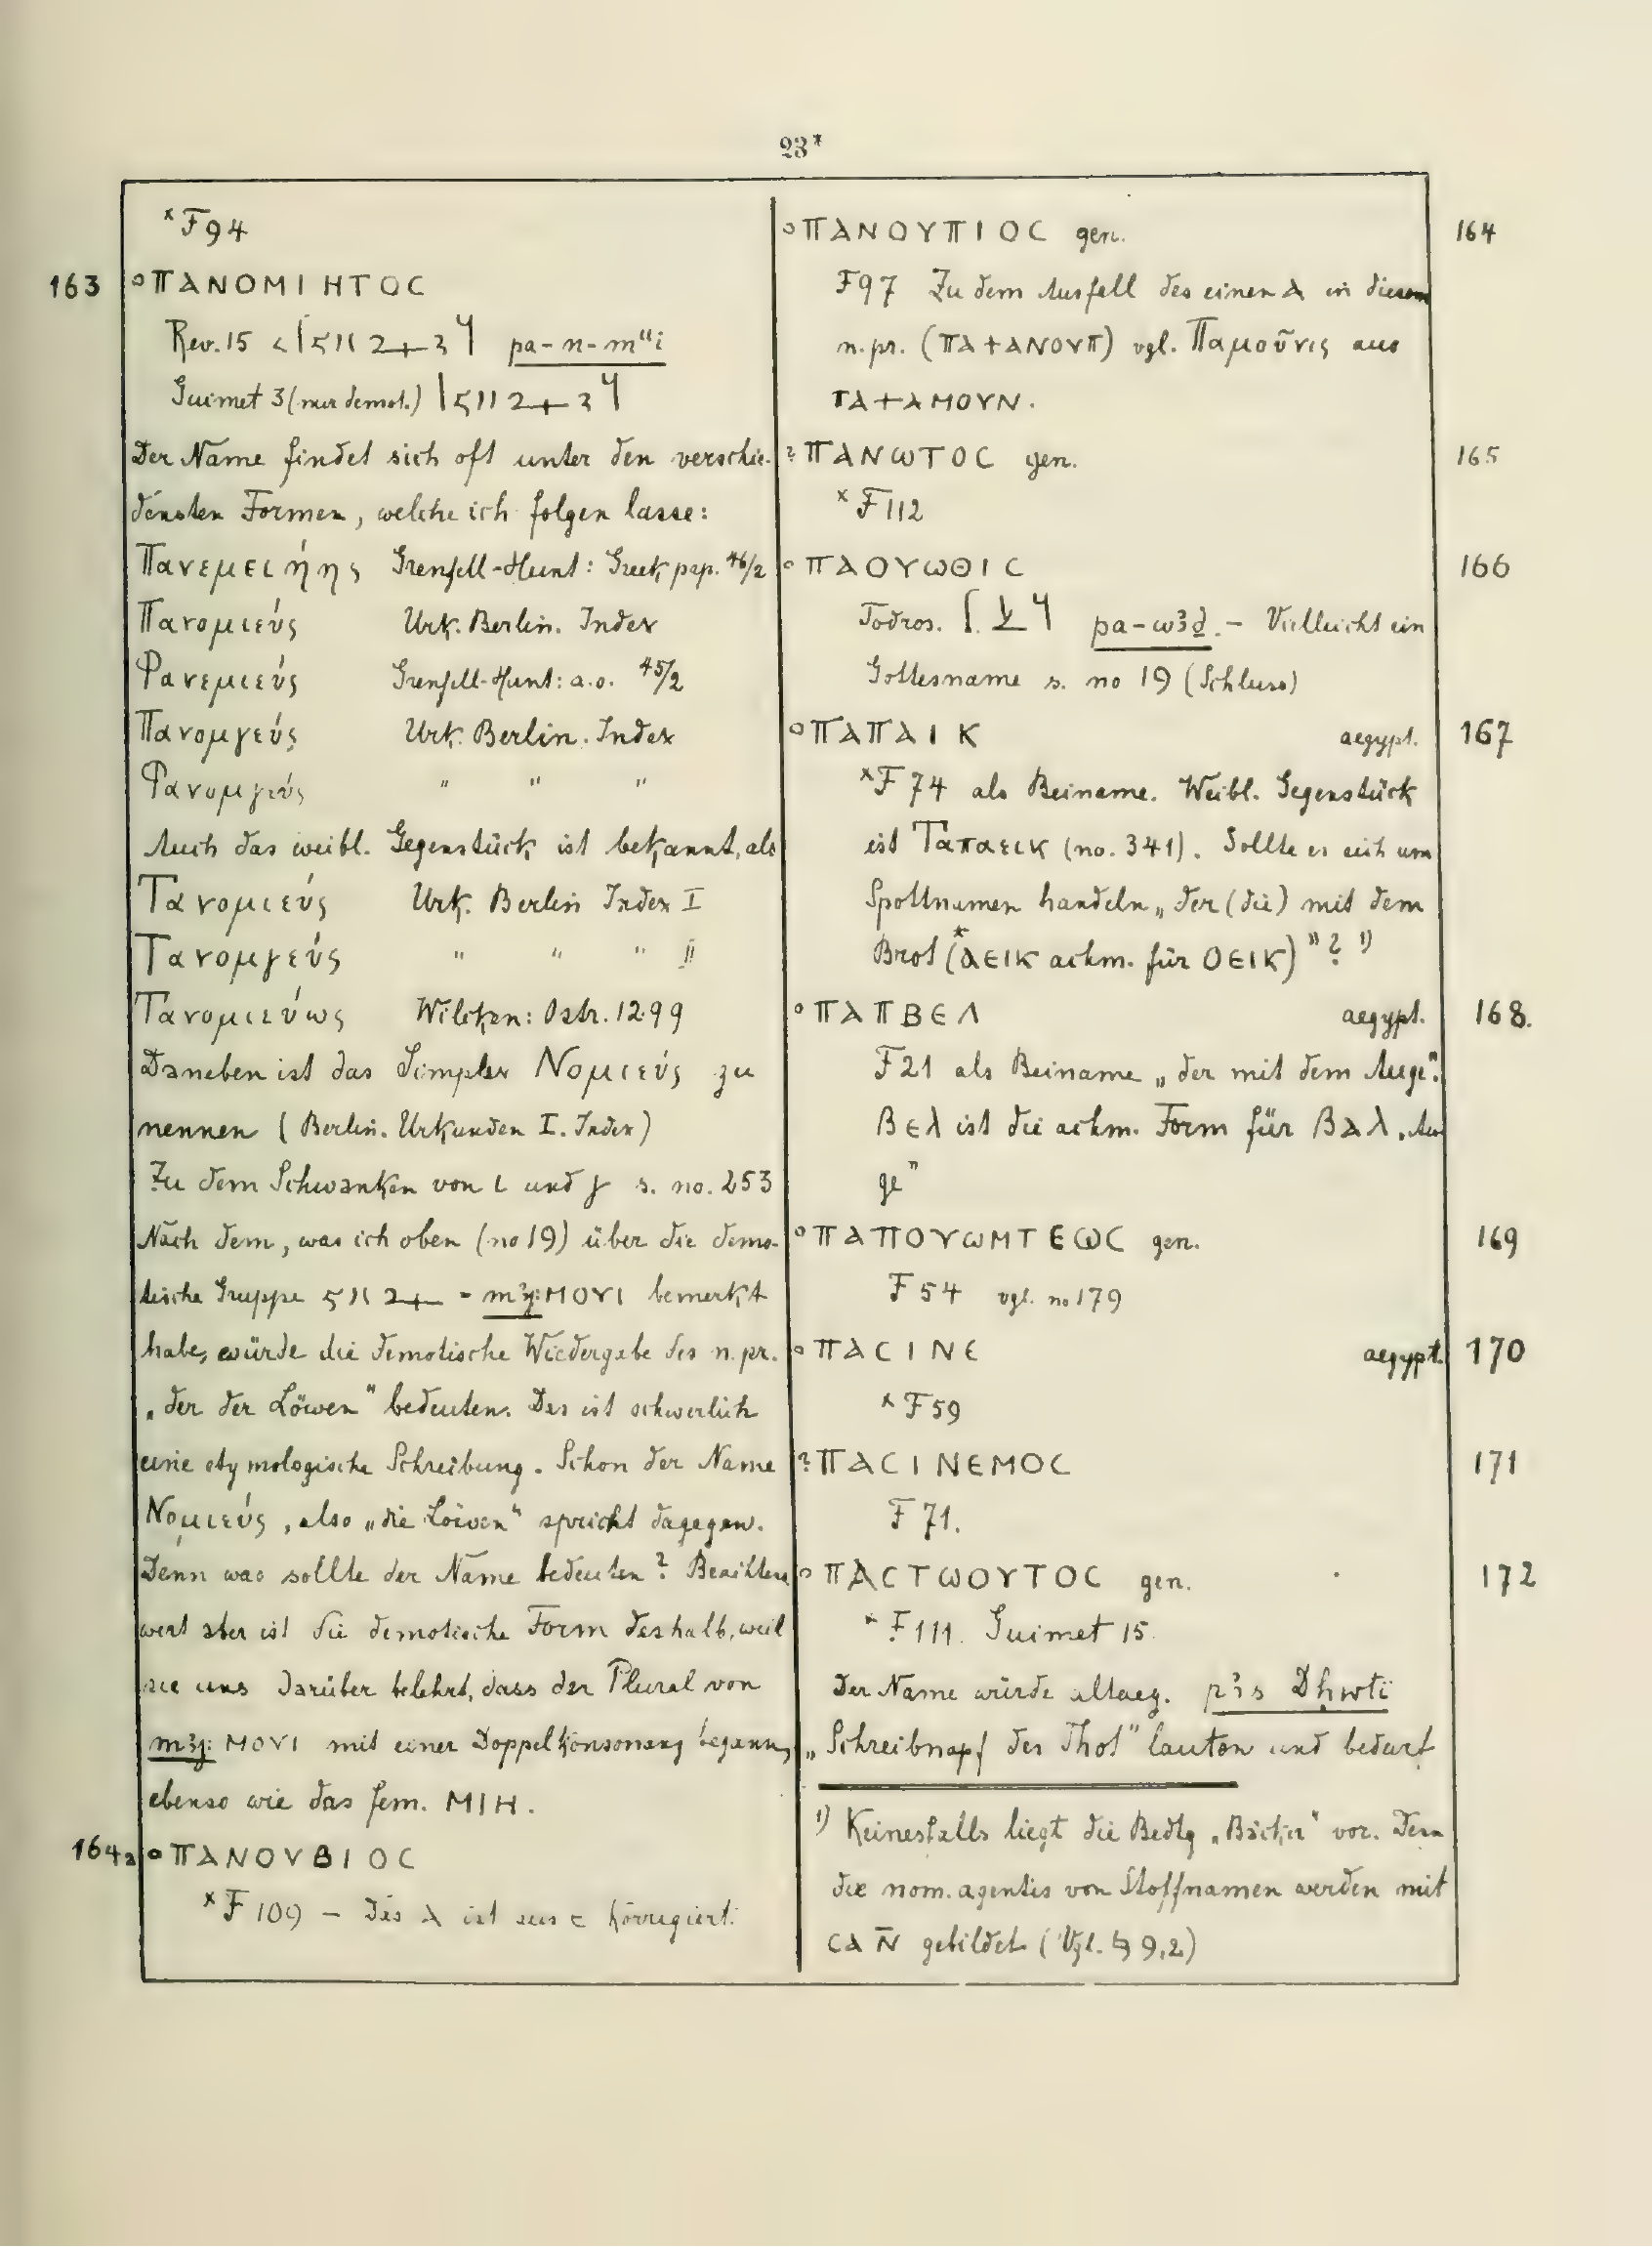 23*
*F94
163 °ΠΑΝΟΜΙΗΤΟC
Rev. 15 pa-n-m"i
Guimet 3 (nur demot.)
Der Name findet sich oft unter den verschie-
densten Formen, welche ich folgen lasse:
Πανεμειήης Grenfell-Hunt: Greek pap. 46/2
Πανομιεύς Urk. Berlin. Index
Φανεμιεύς Grenfell-Hunt: a.o. 45/2
Πανομγεύς Urk. Berlin. Index
Φανομγεύς " " "
Auch das weibl. Gegenstück ist bekannt, als
Τανομιεύς Urk. Berlin Index I
Τανομγεύς " " " II
Τανομιεύως Wilcken: Ostr. 1299
Daneben ist das Simplex Νομιεύς zu
nennen (Berlin. Urkunden I. Index)
Zu dem Schwanken von ι und γ s. no. 253
Nach dem, was ich oben (no 19) über die demo-
tische Gruppe = m3j: ΜΟΥΙ bemerkt
habe, würde die demotische Wiedergabe des n. pr.
„der der Löwen" bedeuten. Das ist schwerlich
eine etymologische Schreibung. Schon der Name
Νομιεύς, also „die Löwen" spricht dagegen.
Denn was sollte der Name bedeuten? Beachtens
wert aber ist die demotische Form deshalb, weil
sie uns darüber belehrt, dass der Plural von
m3j: ΜΟΥΙ mit einer Doppelkonsonanz begann,
ebenso wie das fem. ΜΙΗ.
164a °ΠΑΝΟΥΒΙΟC
*F 109 – Das Α ist aus ε korrigiert.
°ΠΑΝΟΥΠΙΟC gen. 164
F97 Zu dem Ausfall des einen Α in diesem
n. pr. (ΠΑ+ΑΝΟΥΠ) vgl. Παμοῦνις aus
ΠΑ+ΑΜΟΥΝ.
?ΠΑΝѠΤΟC gen. 165
*F112
°ΠΑΟΥѠΘΙC 166
Todros. pa-w3ḏ. – Vielleicht ein
Gottesname s. no 19 (Schluss)
°ΠΑΠΑΙΚ aegypt. 167
*F 74 als Beiname. Weibl. Gegenstück
ist Ταπαεικ (no. 341). Sollte es sich um
Spottnamen handeln „der (die) mit dem
Brot (*ΑΕΙΚ achm. für ΟΕΙΚ)"? 1)
°ΠΑΠΒΕΛ aegypt. 168.
F21 als Beiname „der mit dem Auge".
Βελ ist die achm. Form für Βαλ „Au
ge"
°ΠΑΠΟΥѠΜΤΕѠC gen. 169
F 54 vgl. no 179
°ΠΑCΙΝΕ aegypt. 170
*F59
?ΠΑCΙΝΕΜΟC 171
F 71.
°ΠΑCΤѠΟΥΤΟC gen. 172
*F111. Guimet 15.
Der Name würde altaeg. p3s Ḏḥwti
„Schreibnapf des Thot" lauten und bedarf
1) Keinesfalls liegt die Bedtg „Bäcker" vor. Denn
die nom. agentis von Stoffnamen werden mit
CΑ N̄ gebildet (Vgl. § 9,2)